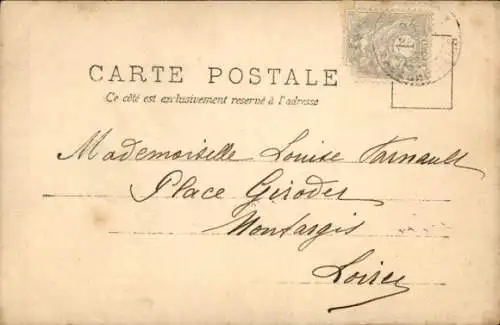 CARTE POSTALE
Ce côté est exclusivement reservé à l'adresse
Mademoiselle Louise Farnault
Place Girodet
Montargis
Loiret